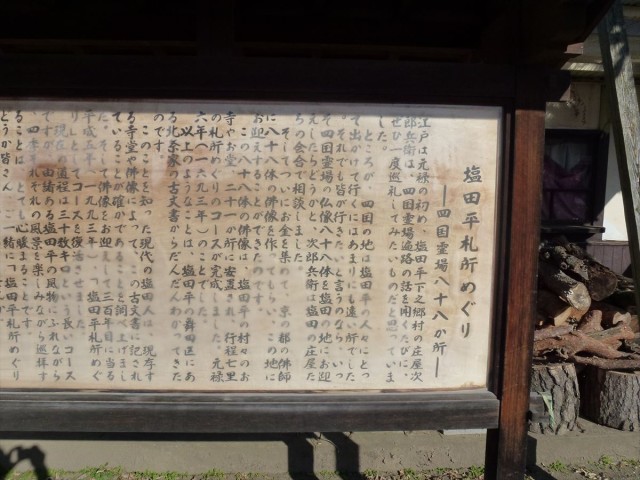 塩田平札所めぐり
―四国霊場八十八か所―
江戸は元禄の初め、塩田平下之郷村の庄屋次
郎兵衛は、四国霊場遍路の話を聞くたびに、
ぜひ一度巡礼してみたいものだと思っていま
した。
ところが、四国の地は塩田平の人々にとっ
て出かけて行くにはあまりにも遠い所でした
。それでも皆が行きたいと言うのなら、いっ
そ四国霊場の仏像八十八体を塩田の地にお迎
えしたらどうかと、次郎兵衛は塩田の庄屋た
ちの会合で相談しました。
そしてついにお金を集めて、京の都の佛師
に八十八体の佛像を作ってもらい、この地に
お迎えすることができたのです。
この八十八体の佛像は、塩田平の村々のお
寺やお堂、二十一か所に安置され、行程七里
の札所めぐりのコースが完成しました。元禄
六年(一六九三年)のことでした。
以上のようなことは、塩田平の舞田区にあ
る北条家の古文書からだんだんわかってきた
のです。
このことを知った現代の塩田人は、現存す
る寺堂や佛像によって、この古文書に記され
ていることが確かであることを調べ上げまし
た。そして佛像をお迎えして三百年目に当る
平成五年(一九九三年)、「塩田平札所めぐ
り」としてコースを復活させました。
現在の道程は三十数キロという長いコース
ですが、由緒ある塩田平の風物にふれながら
、四季それぞれの風景を楽しみながら巡拝す
ることは、とても心暖まることです。
どうか皆さん、ご一緒に「塩田平札所めぐり